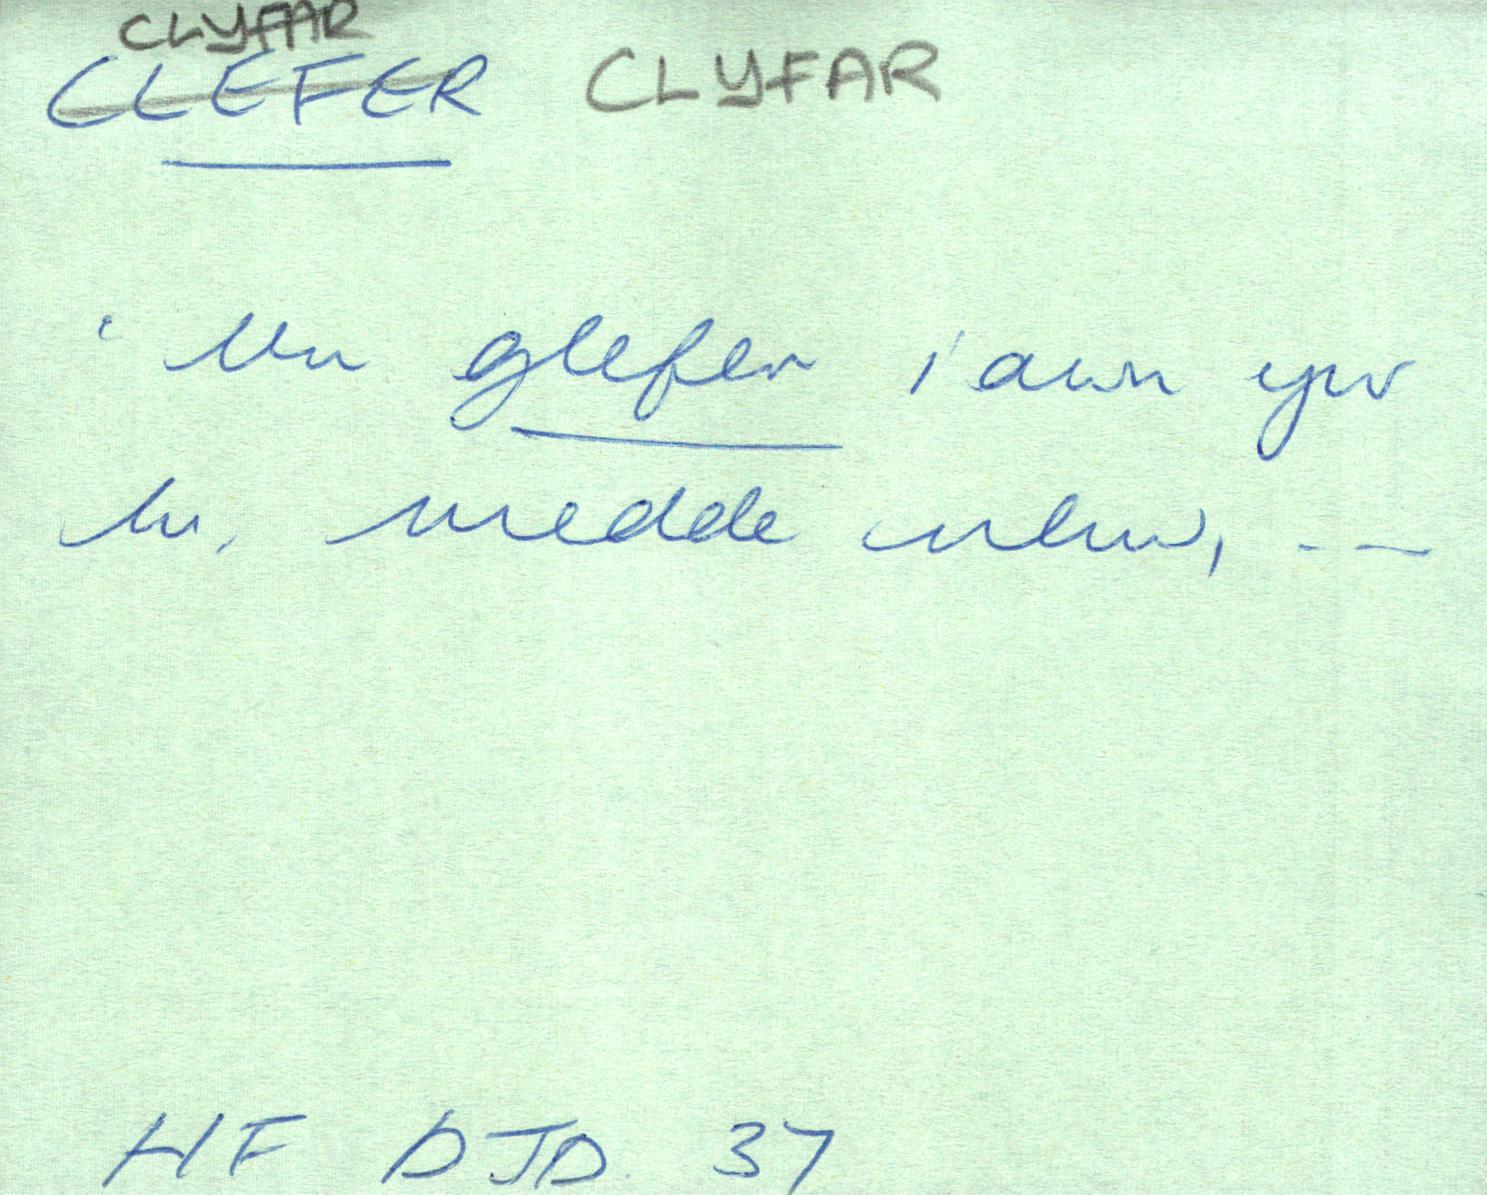 CLYFAR
CLEFER CLYFAR
' Un glefer iawn yw
hi, medde nhw, ---
HF DJD. 37